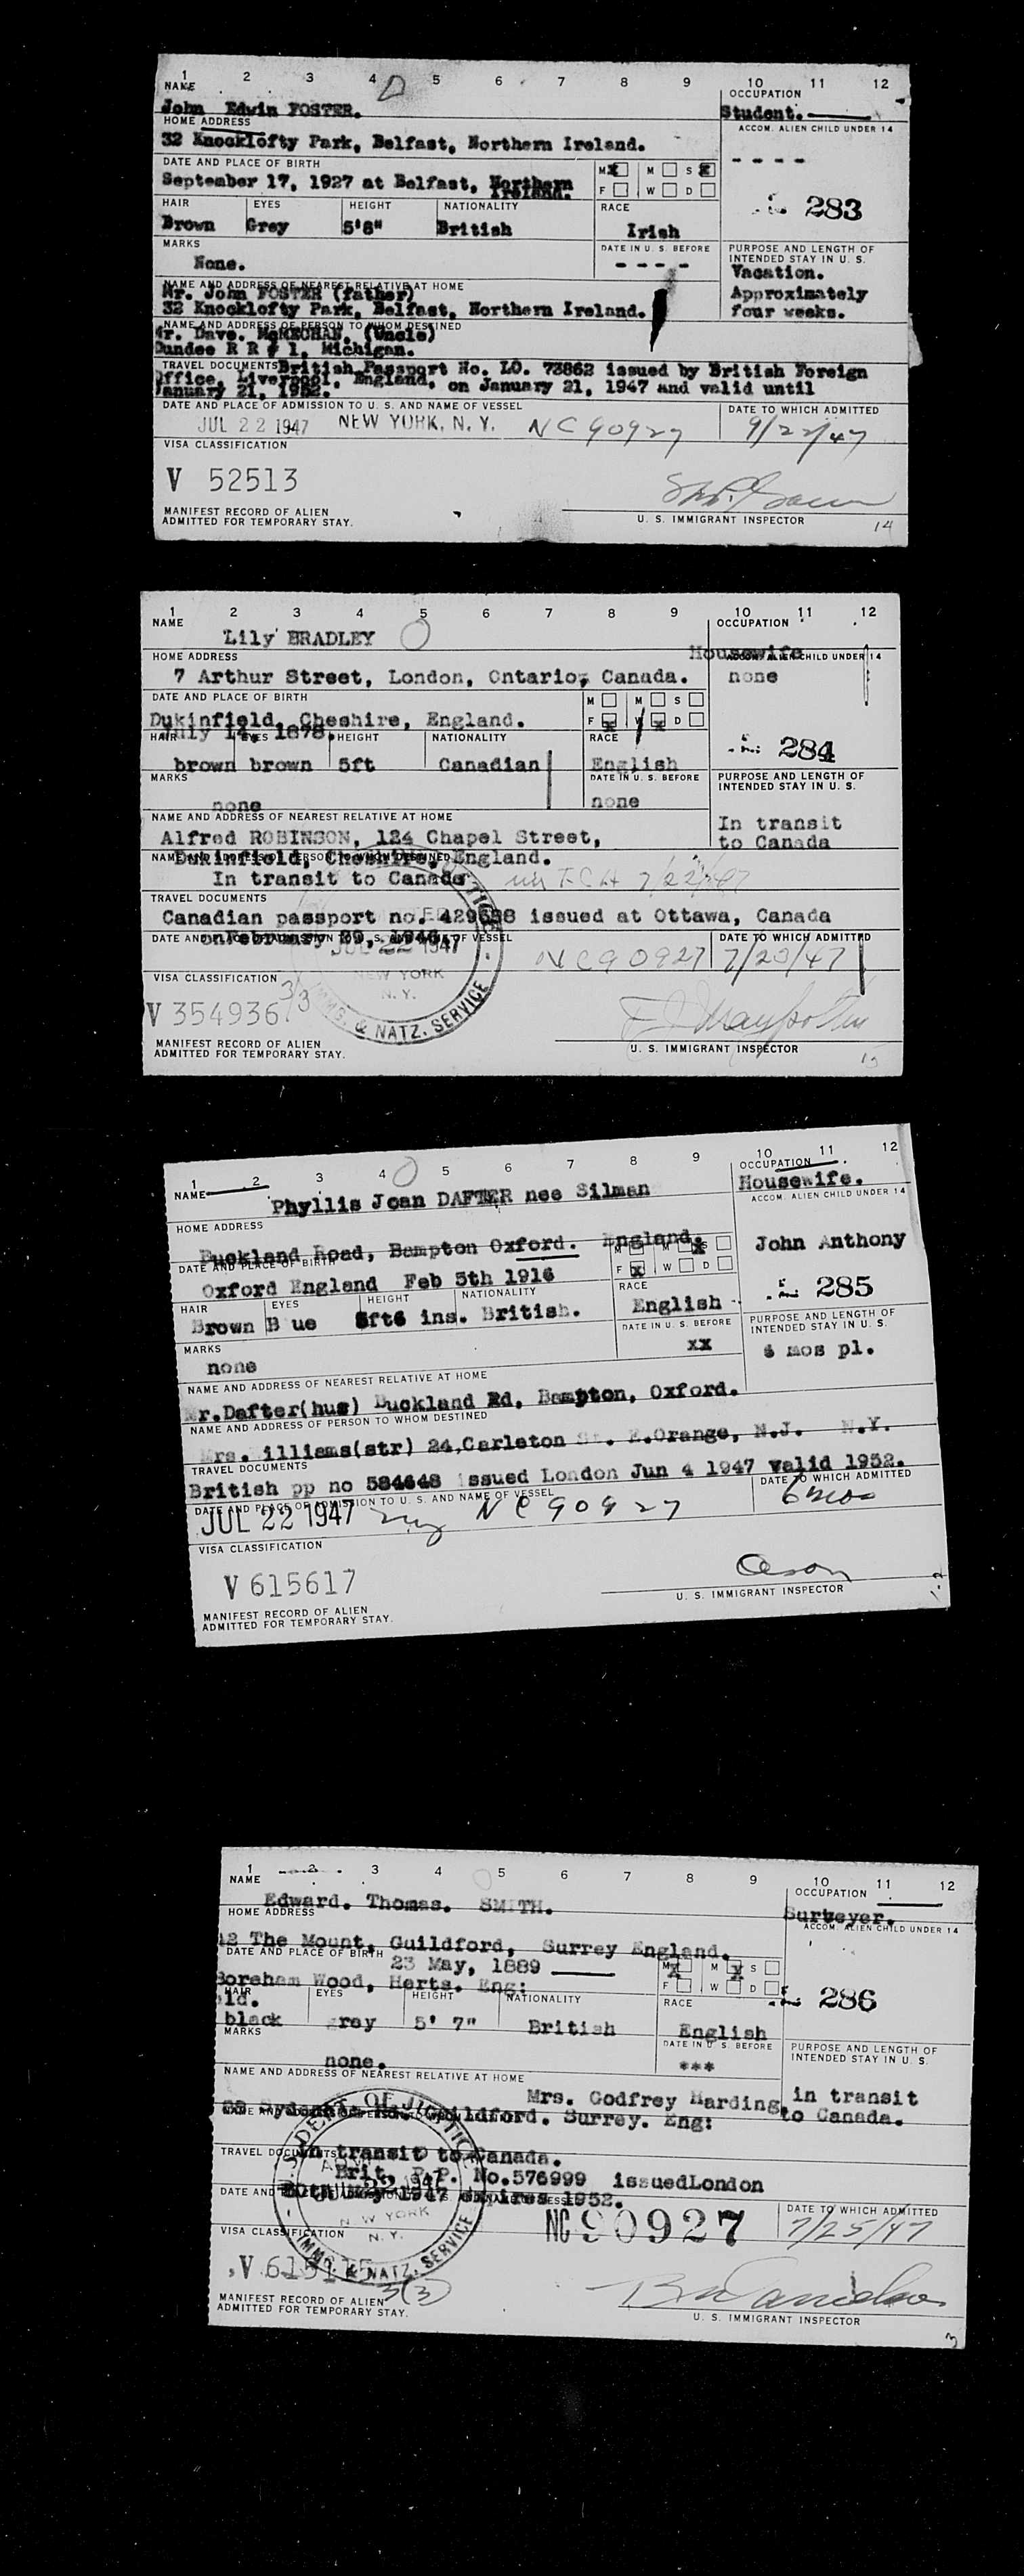 1 2 3 4 5 6 7 8 9 10 11 12
NAME OCCUPATION
John Edwin FOSTER. Student.
HOME ADDRESS ACCOM. ALIEN CHILD UNDER 14
32 Knocklofty Park, Belfast, Northern Ireland. - - - -
DATE AND PLACE OF BIRTH M X M S X
September 17, 1927 at Belfast, Northern Ireland. F W D
283
HAIR EYES HEIGHT NATIONALITY RACE
Brown Grey 5'8" British Irish
MARKS DATE IN U. S. BEFORE PURPOSE AND LENGTH OF INTENDED STAY IN U. S.
None. - - - - Vacation.
NAME AND ADDRESS OF NEAREST RELATIVE AT HOME Approximately
Mr. John FOSTER (father) four weeks.
32 Knocklofty Park, Belfast, Northern Ireland.
NAME AND ADDRESS OF PERSON TO WHOM DESTINED
Mr. Dave. McKECHAN. (Uncle)
Dundee R R # 1, Michigan.
TRAVEL DOCUMENTS British Passport No. LO. 73862 issued by British Foreign
Office, Liverpool, England, on January 21, 1947 and valid until
January 21, 1952.
DATE AND PLACE OF ADMISSION TO U. S. AND NAME OF VESSEL DATE TO WHICH ADMITTED
JUL 22 1947 NEW YORK, N. Y. NC 90927 9/22/47
VISA CLASSIFICATION
V 52513
MANIFEST RECORD OF ALIEN
ADMITTED FOR TEMPORARY STAY. U. S. IMMIGRANT INSPECTOR 14
1 2 3 4 5 6 7 8 9 10 11 12
NAME OCCUPATION
Lily BRADLEY Housewife
HOME ADDRESS ACCOM. ALIEN CHILD UNDER 14
7 Arthur Street, London, Ontario, Canada. none
DATE AND PLACE OF BIRTH M M S
Dukinfield, Cheshire, England. F X W X D
July 14, 1878.
284
HAIR EYES HEIGHT NATIONALITY RACE
brown brown 5ft Canadian English
MARKS DATE IN U. S. BEFORE PURPOSE AND LENGTH OF INTENDED STAY IN U. S.
none none
NAME AND ADDRESS OF NEAREST RELATIVE AT HOME In transit
Alfred ROBINSON, 124 Chapel Street, to Canada
Dukinfield, Cheshire, England.
NAME AND ADDRESS OF PERSON TO WHOM DESTINED
In transit to Canada 7/22/47
TRAVEL DOCUMENTS
Canadian passport no. issued at Ottawa, Canada
on February
DATE AND PLACE OF ADMISSION TO U. S. AND NAME OF VESSEL DATE TO WHICH ADMITTED
JUL 22 1947 NC90927 7/23/47
NEW YORK N. Y.
IMMIG. & NATZ. SERVICE
VISA CLASSIFICATION
V 354936 3/3
MANIFEST RECORD OF ALIEN
ADMITTED FOR TEMPORARY STAY. U. S. IMMIGRANT INSPECTOR
1 2 3 4 5 6 7 8 9 10 11 12
NAME OCCUPATION
Phyllis Joan DAFTER nee Silman Housewife.
HOME ADDRESS ACCOM. ALIEN CHILD UNDER 14
Buckland Road, Bampton Oxford. England. John Anthony
DATE AND PLACE OF BIRTH M M X S
Oxford England Feb 5th 1916 F X W D
285
HAIR EYES HEIGHT NATIONALITY RACE
Brown B ue 5ft6 ins. British. English
MARKS DATE IN U. S. BEFORE PURPOSE AND LENGTH OF INTENDED STAY IN U. S.
none xx 6 mos pl.
NAME AND ADDRESS OF NEAREST RELATIVE AT HOME
Mr.Dafter(hus) Buckland Rd, Bampton, Oxford.
NAME AND ADDRESS OF PERSON TO WHOM DESTINED
Mrs. Williams(str) 24,Carleton St. E.Orange, N.J. N.Y.
TRAVEL DOCUMENTS
British pp no 584648 issued London Jun 4 1947 valid 1952.
DATE AND PLACE OF ADMISSION TO U. S. AND NAME OF VESSEL DATE TO WHICH ADMITTED
JUL 22 1947 NC 90927 6 mos
VISA CLASSIFICATION
V 615617
MANIFEST RECORD OF ALIEN
ADMITTED FOR TEMPORARY STAY. U. S. IMMIGRANT INSPECTOR
1 2 3 4 5 6 7 8 9 10 11 12
NAME OCCUPATION
Edward. Thomas. SMITH. Surveyer.
HOME ADDRESS ACCOM. ALIEN CHILD UNDER 14
12 The Mount, Guildford, Surrey England.
DATE AND PLACE OF BIRTH M X M X S
23 May, 1889 F W D
Boreham Wood, Herts. Eng:
286
HAIR EYES HEIGHT NATIONALITY RACE
black grey 5' 7" British English
MARKS DATE IN U. S. BEFORE PURPOSE AND LENGTH OF INTENDED STAY IN U. S.
none. ***
NAME AND ADDRESS OF NEAREST RELATIVE AT HOME
Mrs. Godfrey Harding in transit
Guildford. Surrey. Eng: to Canada.
in transit to Canada.
TRAVEL DOCUMENTS
Brit. P.P. No.576999 issuedLondon
1947 expires 1952.
DATE TO WHICH ADMITTED
NC 90927 7/25/47
U. S. DEPT. OF JUSTICE
NEW YORK N. Y.
IMMIG. & NATZ. SERVICE
VISA CLASSIFICATION
3(3)
MANIFEST RECORD OF ALIEN
ADMITTED FOR TEMPORARY STAY. U. S. IMMIGRANT INSPECTOR
3